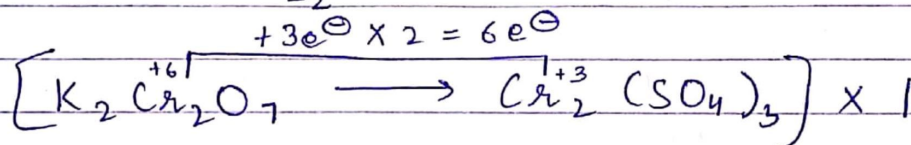 +3e⊖ × 2 = 6e⊖
[K₂Cr₂⁺⁶O₇ ⟶ Cr₂⁺³(SO₄)₃] × 1